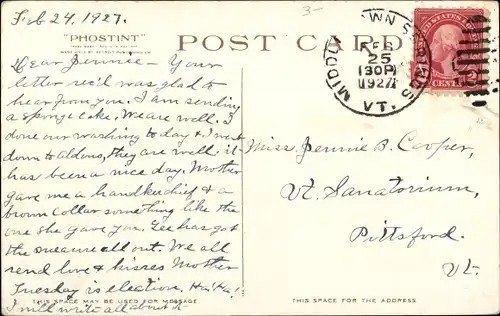 Feb 24, 1927.
3-
"PHOSTINT"
POST CARD
MIDDLETOWN SPRINGS
FEB
25
130P
1927
VT.
Dear Jennie - Your
letter rec'd was glad to
hear from you. I am sending
a sponge cake, We are well. I
done our washing to day & I went
down to Aldons, they are well. it
has been a nice day, Mother
gave me a handkerchief & a
brown collar something like the
one she gave you. Lee has got
the all out. We all
send love & kisses Mother
Tuesday is election. Ha! Ha!
I will write all about it
Miss. Jennie B. Cooper,
Vt. Sanatorium,
Pittsford.
Vt.
THIS SPACE MAY BE USED FOR MESSAGE.
THIS SPACE FOR THE ADDRESS